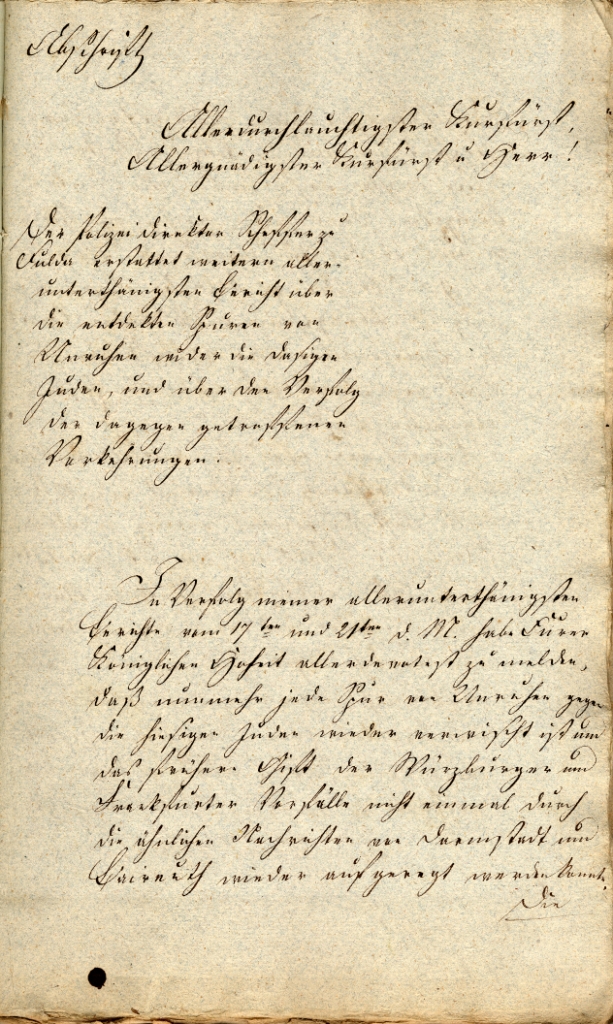 Abschrift
Allerdurchlauchtigster Kurfürst,
Allergnädigster Kurfürst u Herr!
Der Polizei direktor Scheffer zu
Fulda erstattet weitern aller-
unterthänigsten Bericht über
die entdekten Spuren von
Unruhen wider die dasigen
Juden, und über den Verfolg
der dagegen getroffenen
Vorkehrungen.
In Verfolg meiner allerunterthänigsten
Berichte vom 17ten und 21ten d. M. habe Eurer
Königlichen Hoheit allerdevotest zu melden,
daß nunmehr jede Spur von Unruhen gegen
die hiesigen Juden wieder verwischt ist und
das frühere Gift der Würzburger und
Frankfurter Vorfälle nicht einmal durch
die ähnlichen Nachrichten von Darmstadt und
Baireuth wieder aufgeregt werden konnte.
Die